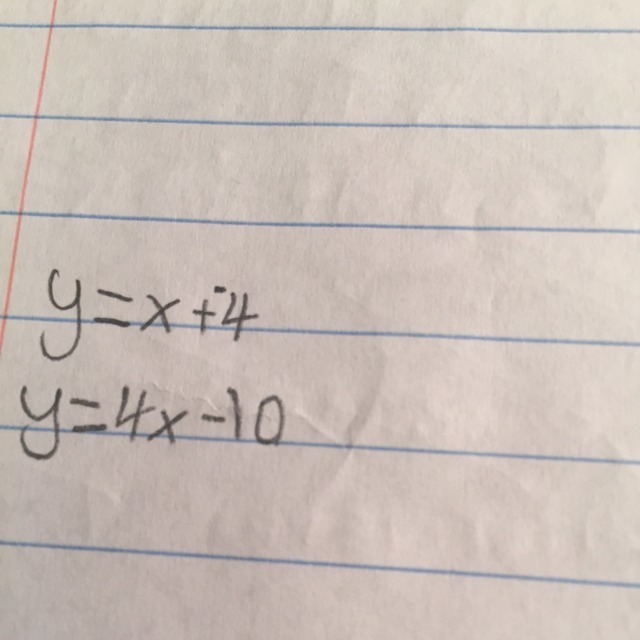 y=x+-4
y=4x-10